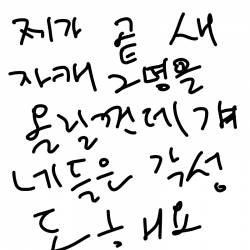 제가 곧 새
자캐 2명을
올릴껀데 걔
네들은 각성